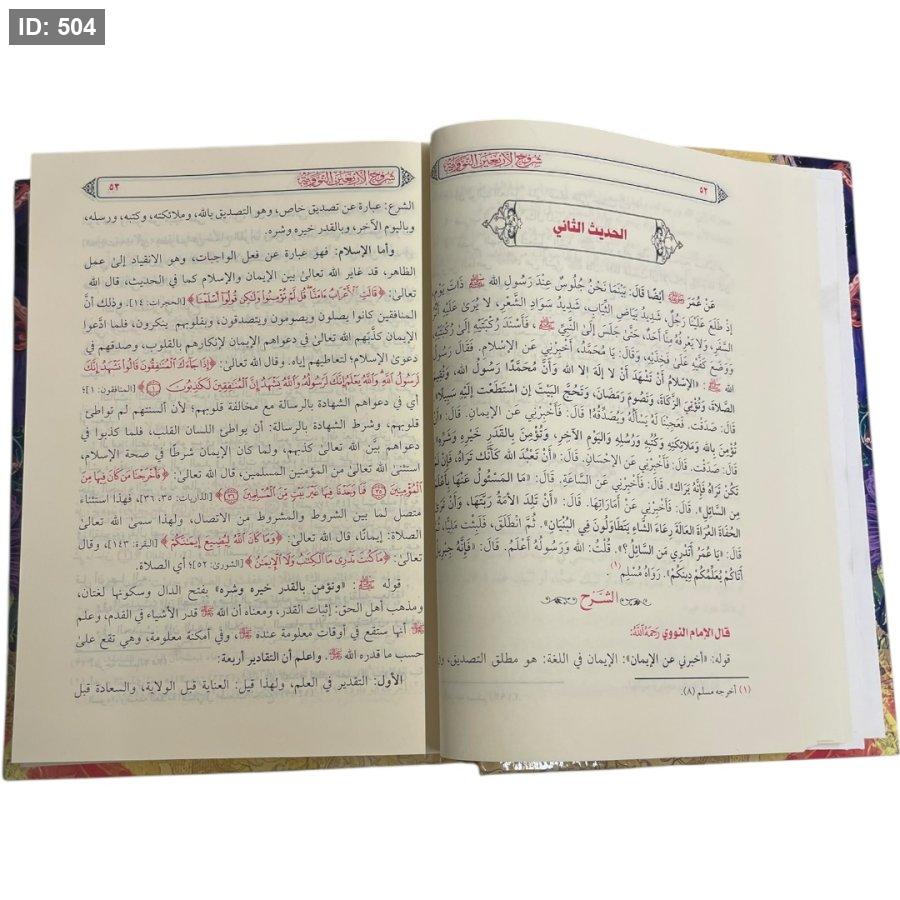 ID: 504
شروح الأربعين النووية
٥٢
الحديث الثاني
عَنْ عُمَرَ رضي الله عنه أَيْضًا قَالَ: بَيْنَمَا نَحْنُ جُلُوسٌ عِنْدَ رَسُولِ الله ﷺ ذَاتَ يَوْمٍ،
إِذْ طَلَعَ عَلَيْنَا رَجُلٌ شَدِيدُ بَيَاضِ الثِّيَابِ، شَدِيدُ سَوَادِ الشَّعْرِ، لَا يُرَى عَلَيْهِ
السَّفَرِ، وَلَا يَعْرِفُهُ مِنَّا أَحَدٌ، حَتَّى جَلَسَ إِلَى النَّبِيِّ ﷺ، فَأَسْنَدَ رُكْبَتَيْهِ إِلَى رُكْبَتَيْهِ،
وَوَضَعَ كَفَّيْهِ عَلَى فَخِذَيْهِ، وَقَالَ: يَا مُحَمَّدُ، أَخْبِرْنِي عَنِ الإِسْلَامِ. فَقَالَ رَسُولُ
الله ﷺ: «الإِسْلَامُ أَنْ تَشْهَدَ أَنْ لَا إِلَهَ إلا الله وَأَنَّ مُحَمَّدًا رسُولُ الله، وَتُقِيمَ
الصَّلَاةَ، وَتُؤْتِيَ الزَّكَاةَ، وَتَصُومَ رَمَضَانَ، وَتَحُجَّ البَيْتَ إِن اسْتَطَعْتَ إِلَيْهِ سَبِيلًا»
قَالَ: صَدَقْتَ. فَعَجِبْنَا لَهُ يَسْأَلُهُ وَيُصَدِّقُهُ! قَالَ: فَأَخْبِرْنِي عَنِ الإِيمَانِ. قَالَ:
تُؤْمِنَ بِالله وَمَلَائِكَتِهِ وَكُتُبِهِ وَرُسُلِهِ وَاليَوْمِ الآخِرِ، وَتُؤْمِنَ بِالقَدَرِ خَيْرِهِ وَشَرِّهِ»
قَالَ: صَدَقْتَ. قَالَ: فَأَخْبِرْنِي عَنِ الإِحْسَانِ. قَالَ: «أَنْ تَعْبُدَ الله كَأَنَّكَ تَرَاهُ، فَإِنْ لَمْ
تَكُنْ تَرَاهُ فَإِنَّهُ يَرَاكَ». قَالَ: فَأَخْبِرْنِي عَنِ السَّاعَةِ. قَالَ: «مَا المَسْئُولُ عَنْهَا بِأَعْلَمَ
مِنَ السَّائِلِ». قَالَ: فَأَخْبِرْنِي عَنْ أَمَارَاتِهَا. قَالَ: «أَنْ تَلِدَ الأَمَةُ رَبَّتَهَا، وَأَنْ تَرَى
الحُفَاةَ العُرَاةَ العَالَةَ رِعَاءَ الشَّاءِ يَتَطَاوَلُونَ فِي البُنْيَانِ». ثُمَّ انْطَلَقَ، فَلَبِثْتُ مَلِيًّا، ثُمَّ
قَالَ: «يَا عُمَرُ أَتَدْرِي مَنِ السَّائِلُ؟». قُلْتُ: الله وَرَسُولُهُ أَعْلَمُ. قَالَ: «فَإِنَّهُ جِبْرِيلُ
أَتَاكُمْ يُعَلِّمُكُمْ دِينَكُمْ». رَوَاهُ مُسْلِم (١).
الشَّرْح
قال الإمام النووي رحمه الله:
قوله: «أخبرني عن الإيمان»: الإيمان في اللغة: هو مطلق التصديق، وفي
(١) أخرجه مسلم (٨).
شروح الأربعين النووية
٥٣
الشرع: عبارة عن تصديق خاص، وهو التصديق بالله، وملائكته، وكتبه، ورسله،
وباليوم الآخر، وبالقدر خيره وشره.
وأما الإسلام: فهو عبارة عن فعل الواجبات، وهو الانقياد إلى عمل
الظاهر، قد غاير الله تعالى بين الإيمان والإسلام كما في الحديث، قال الله
تعالى: ﴿قَالَتِ ٱلْأَعْرَابُ ءَامَنَّا قُل لَّمْ تُؤْمِنُوا۟ وَلَـٰكِن قُولُوٓا۟ أَسْلَمْنَا﴾ [الحجرات: ١٤]. وذلك أنَّ
المنافقين كانوا يصلون ويصومون ويتصدقون، وبقلوبهم ينكرون، فلما ادَّعوا
الإيمان كذَّبهم الله تعالى في دعواهم الإيمان لإنكارهم بالقلوب، وصدقهم في
دعوى الإسلام؛ لتعاطيهم إياه. وقال الله تعالى: ﴿إِذَا جَآءَكَ ٱلْمُنَـٰفِقُونَ قَالُوا۟ نَشْهَدُ إِنَّكَ
لَرَسُولُ ٱللَّهِ وَٱللَّهُ يَعْلَمُ إِنَّكَ لَرَسُولُهُۥ وَٱللَّهُ يَشْهَدُ إِنَّ ٱلْمُنَـٰفِقِينَ لَكَـٰذِبُونَ ١﴾ [المنافقون: ١]؛
أي في دعواهم الشهادة بالرسالة مع مخالفة قلوبهم؛ لأن ألسنتهم لم تواطئ
قلوبهم، وشرط الشهادة بالرسالة: أن يواطئ اللسان القلب، فلما كذبوا في
دعواهم بيَّن الله تعالى كذبهم، ولما كان الإيمان شرطًا في صحة الإسلام،
استثنى الله تعالى من المؤمنين المسلمين، قال الله تعالى: ﴿فَأَخْرَجْنَا مَن كَانَ فِيهَا مِنَ
ٱلْمُؤْمِنِينَ ٣٥ فَمَا وَجَدْنَا فِيهَا غَيْرَ بَيْتٍ مِّنَ ٱلْمُسْلِمِينَ ٣٦﴾ [الذاريات: ٣٥، ٣٦]، فهذا استثناء
متصل لما بين الشروط والمشروط من الاتصال، ولهذا سمى الله تعالى
الصلاة: إيمانًا، قال الله تعالى: ﴿وَمَا كَانَ ٱللَّهُ لِيُضِيعَ إِيمَـٰنَكُمْ﴾ [البقرة: ١٤٣]، وقال
تعالى: ﴿مَا كُنتَ تَدْرِى مَا ٱلْكِتَـٰبُ وَلَا ٱلْإِيمَـٰنُ﴾ [الشورى: ٥٢]؛ أي الصلاة.
قوله ﷺ: «وتؤمن بالقدر خيره وشره» بفتح الدال وسكونها لغتان،
ومذهب أهل الحق: إثبات القدر، ومعناه أن الله ﷻ قدر الأشياء في القدم، وعلم
ﷻ أنها ستقع في أوقات معلومة عنده ﷻ، وفي أمكنة معلومة، وهي تقع على
حسب ما قدره الله ﷻ. واعلم أن التقادير أربعة:
الأول: التقدير في العلم، ولهذا قيل: العناية قبل الولاية، والسعادة قبل